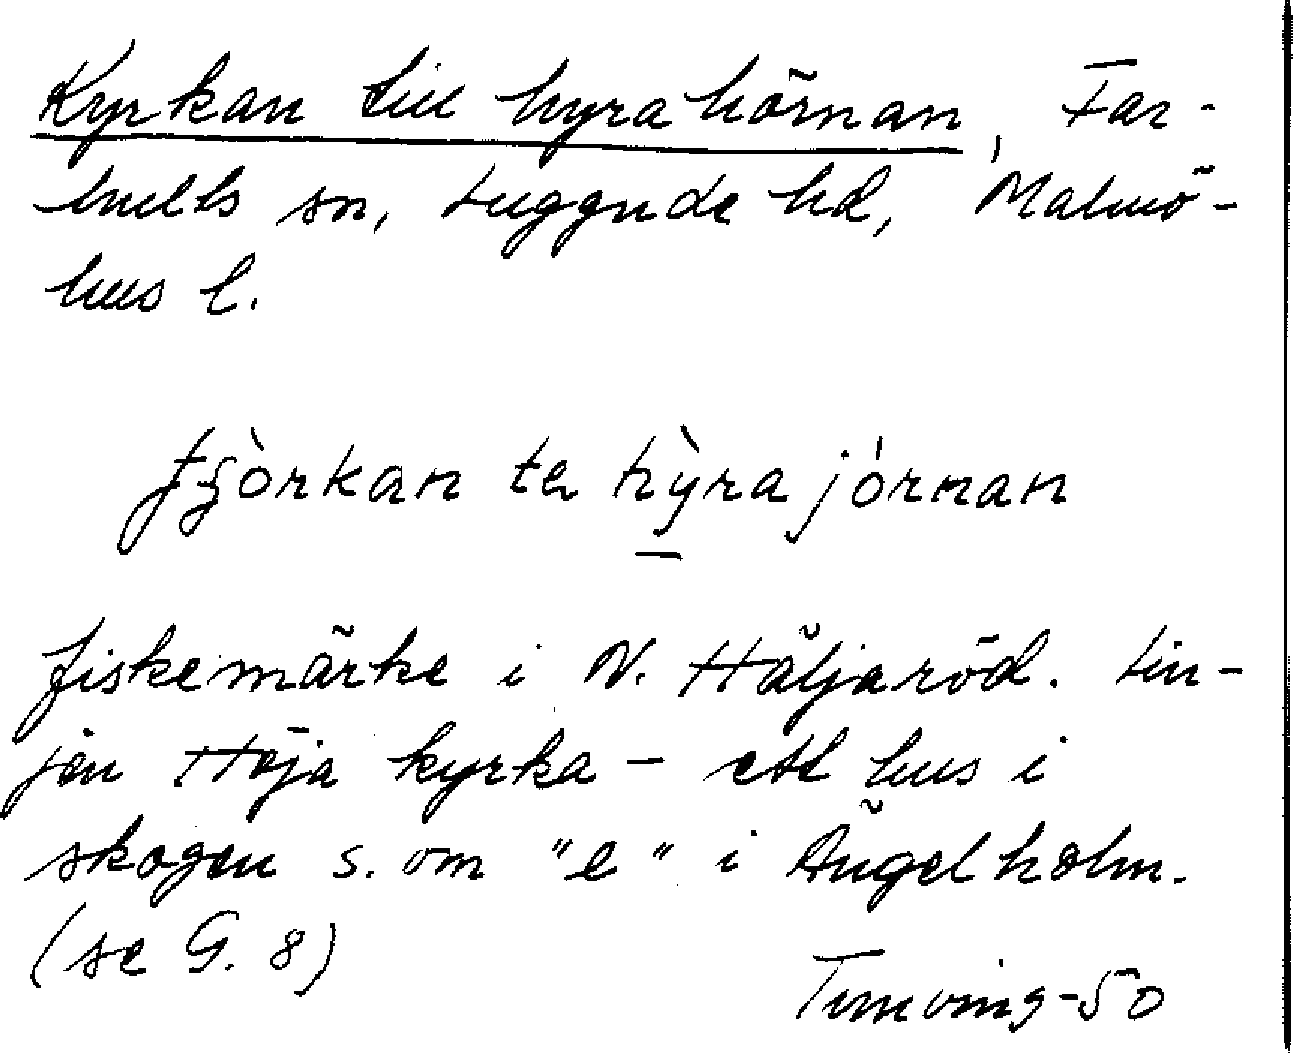 Kyrkan till hyrahörnan, Far-
hults sn, Luggude hd, Malmö-
hus l.
hỳra jórnan
fiskemärke i N. Häljaröd. Lin-
jen Höja kyrka - ett hus i
skogen s. om "e" i Ängelholm.
(se G. 8)
-50